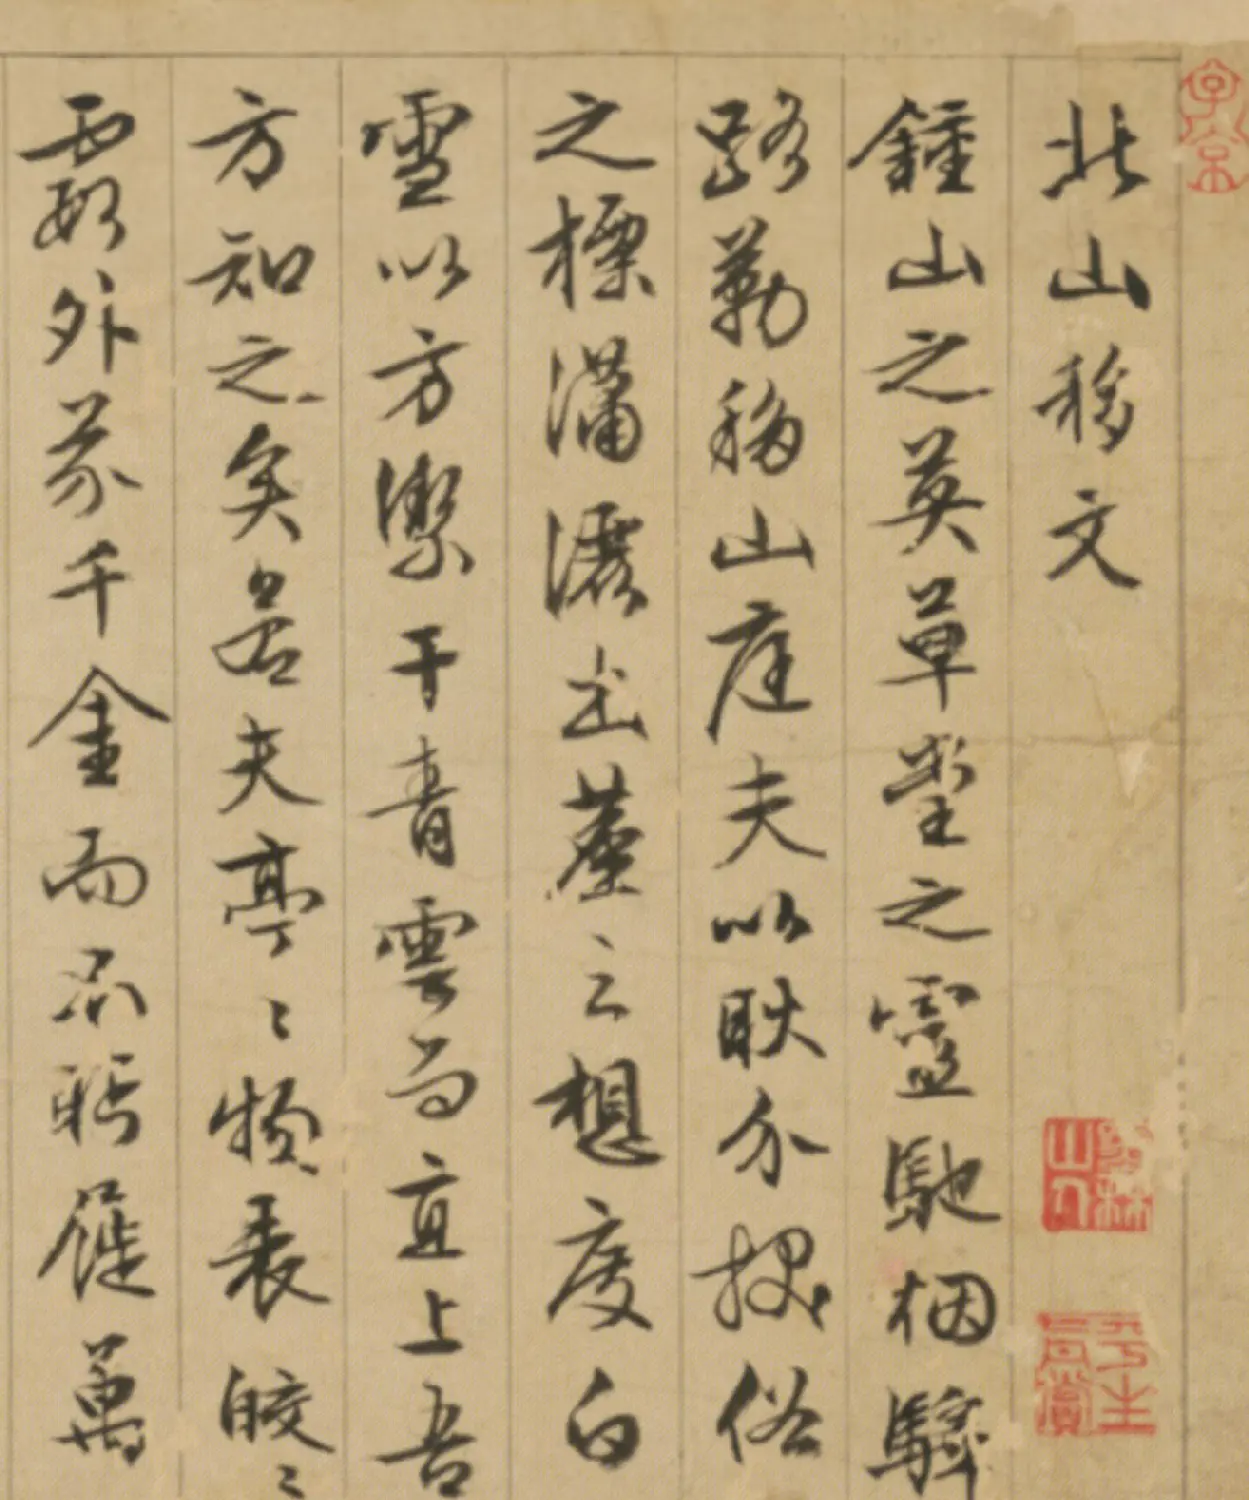 子京
北山移文
墨林山人
平生真賞
鍾山之英草堂之靈馳烟驛
路勒移山庭夫以耿介拔俗
之標瀟灑出塵之想度白
雪以方潔干青雲而直上吾
方知之矣若夫亭〻物表皎〻
霞外芥千金而不眄屣萬